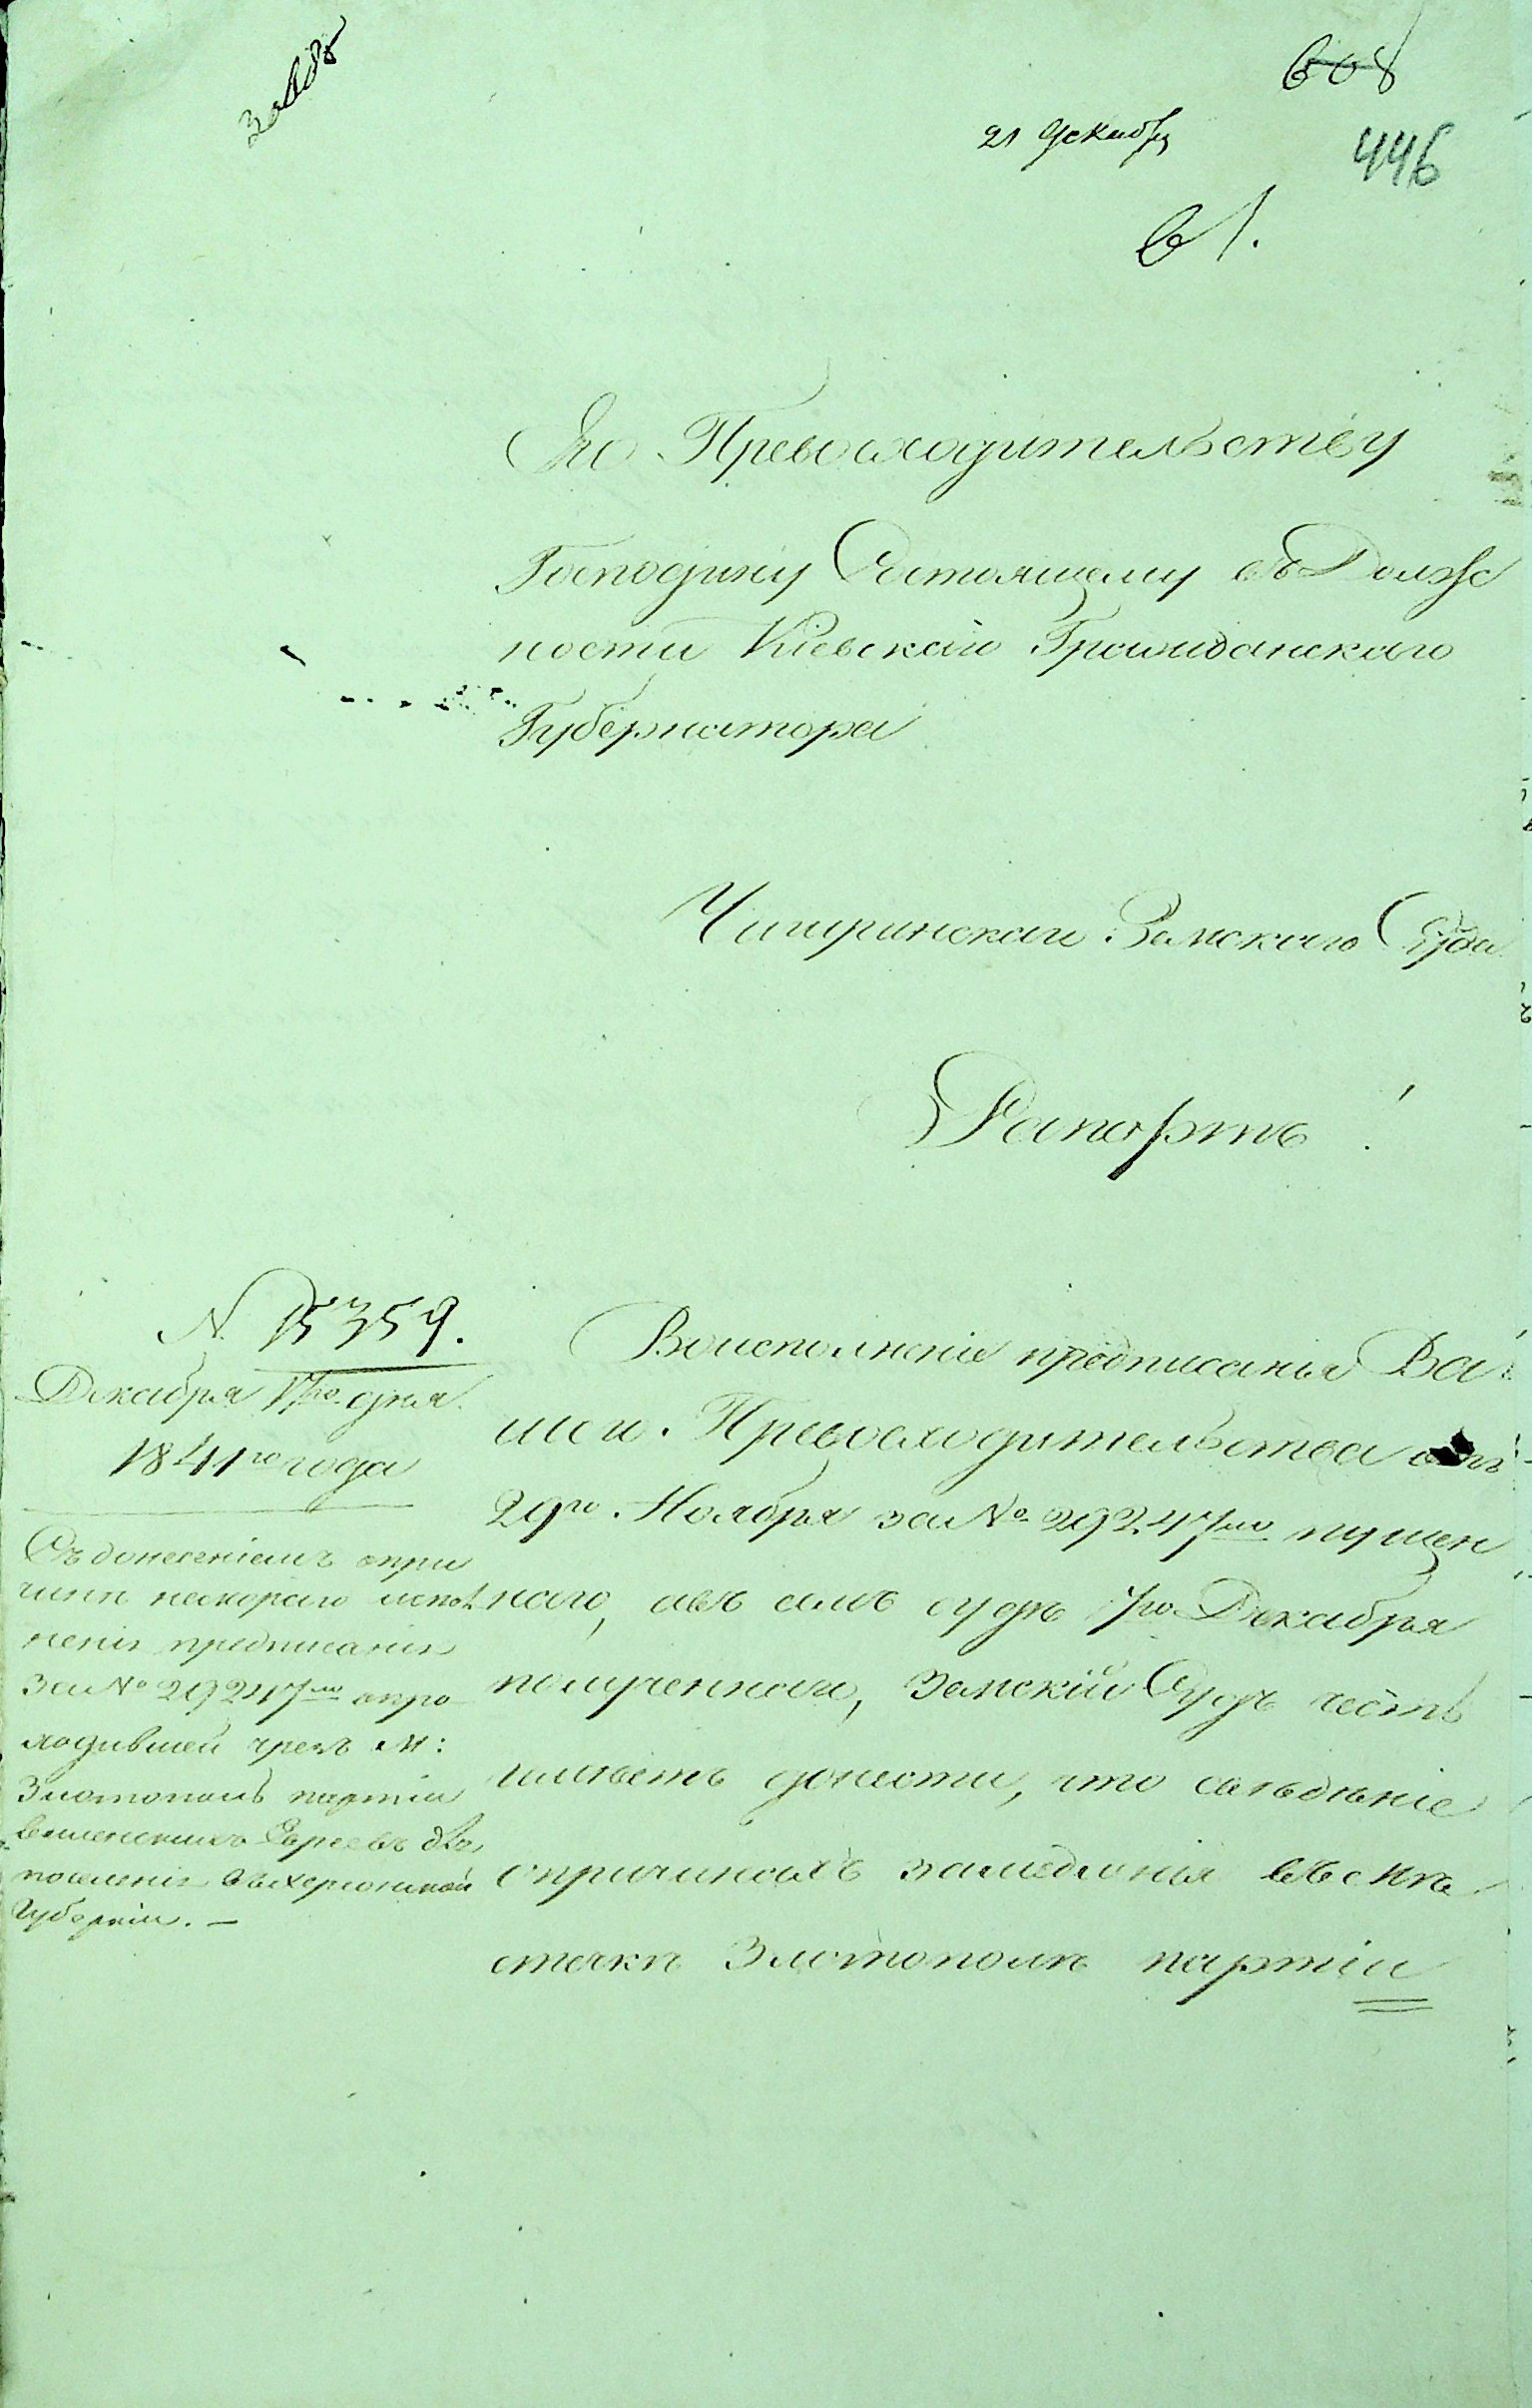 608
21 Декабря
446
Его Превосходительству
Господину Состоящему въ Долж
ности Кіевскаго Гражданскаго
Губернатора
Чигиринскаго Земскаго Суда
Рапортъ
N. 15359.
Декабря 17го дня
1841го года
Съ донесеніемъ опри
чинѣ нескораго испол
ненія предписанія
за № 29247мъ опро
ходившей чрезъ М:
Златополь партіи
виленскихъ Евреевъ для
поселенія въ Херсонской
Губерніи. —
Воисполненіе предписанія Ва
шего Превосходительства отъ
29го Ноября за № 29247мъ пущен
наго, авъ семъ судѣ 7го Декабря
полученнаго, Земскій Судъ честь
имѣетъ донести, что свѣдѣніе
опричинахъ замедленія въ мѣ
стечкѣ Златополѣ партіи